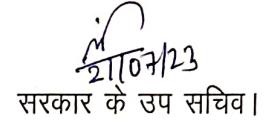 21/07/23
सरकार के उप सचिव।